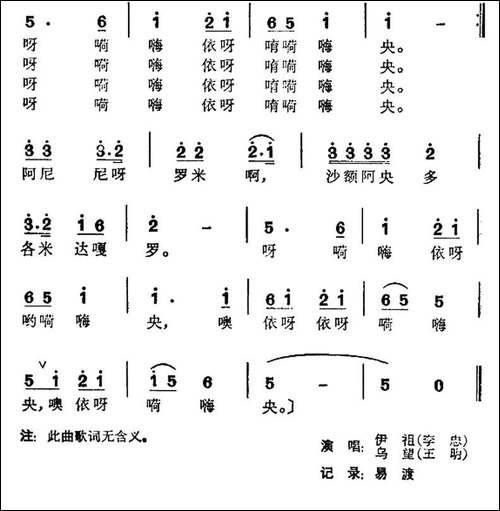 5· 6 | i | 2i | 65 i | i - :‖
呀 嗬 嗨 依呀 唷嗬 嗨 央。
呀 嗬 嗨 依呀 唷嗬 嗨 央。
呀 嗬 嗨 依呀 唷嗬 嗨 央。
呀 嗬 嗨 依呀 唷嗬 嗨 央。
3 3 3·2 | 2 2 2·1 | 3 3 3 3 2
阿尼 尼呀 罗米 啊, 沙额阿央 多
3·2 1 6 | 2 - | 5· 6 | 1 2 1
各米 达嘎 罗。 呀 嗬 嗨 依呀
6 5 1 | 1· 1 | 6 1 2 1 | 6 5 5
哟嗬 嗨 央, 噢 依呀 依呀 嗬 嗨
∨
5 1 2 1 | 1 5 6 | 5 - | 5 0 ‖
央,噢 依呀 嗬 嗨 央。〕
注: 此曲歌词无含义。
演唱: 伊祖(李忠)
乌望(王明)
记录: 易渡